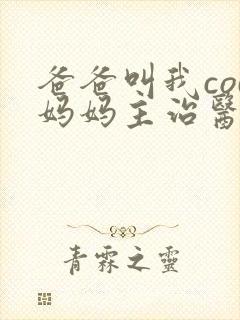 爸爸叫我co
妈妈主治醫
青霖之靈